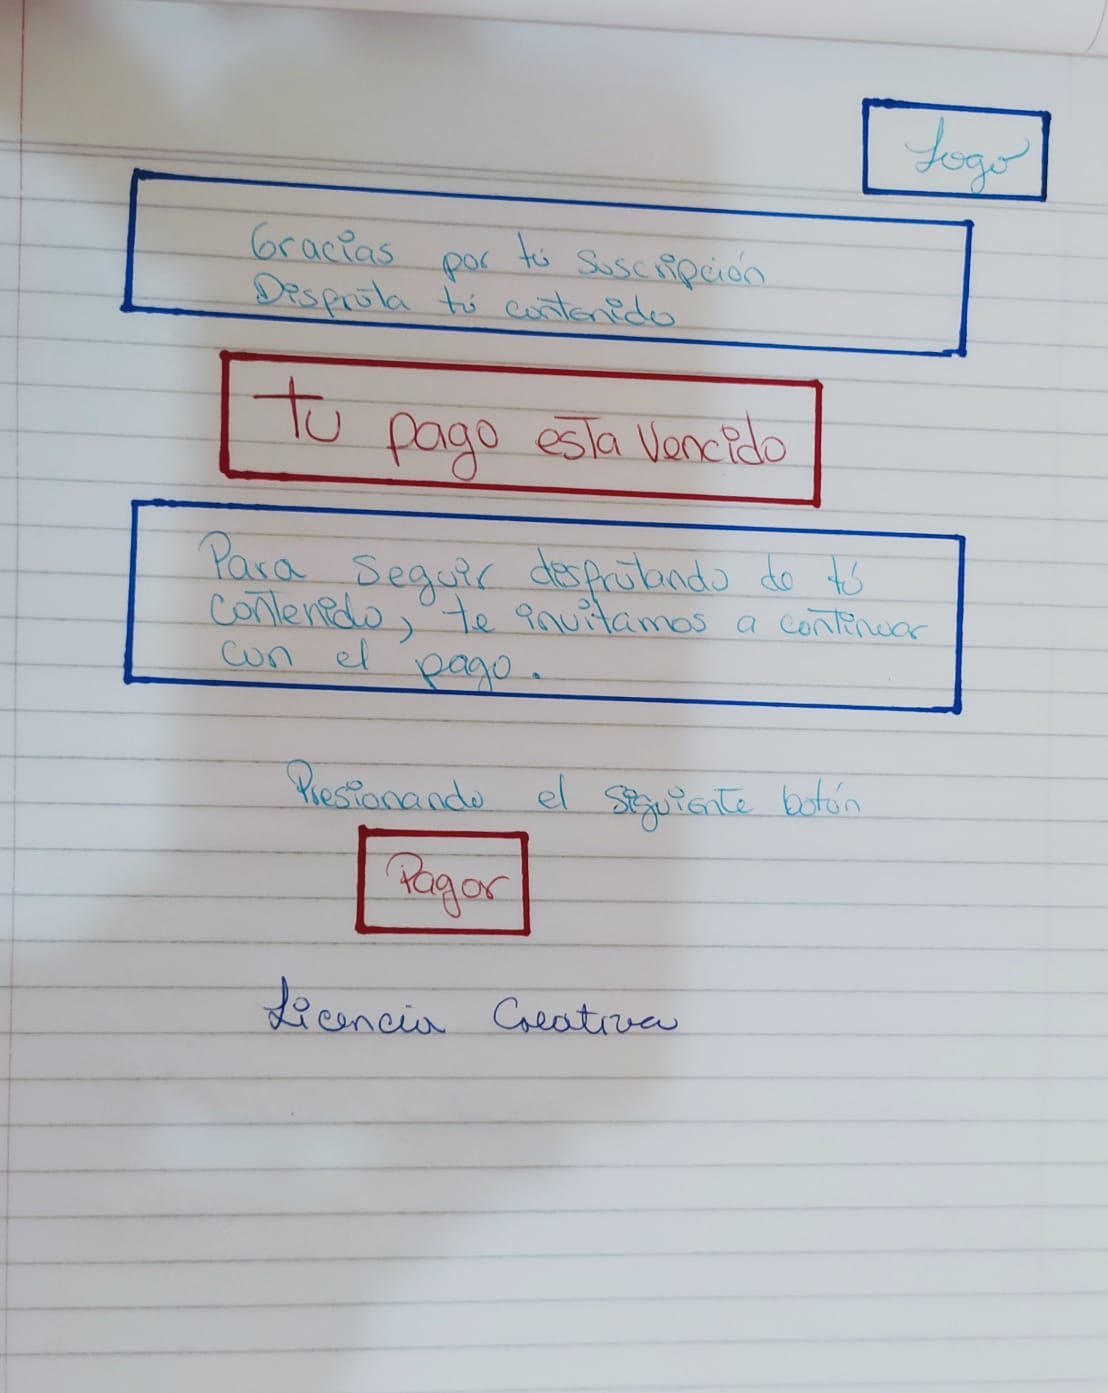 Logo
Gracias por tú suscripción
Disfruta tú contenido
Tu pago esta Vencido
Para seguir desfrutando de tú
contenido, te invitamos a continuar
con el pago.
Presionando el siguiente botón
Pagar
Licencia Creativa